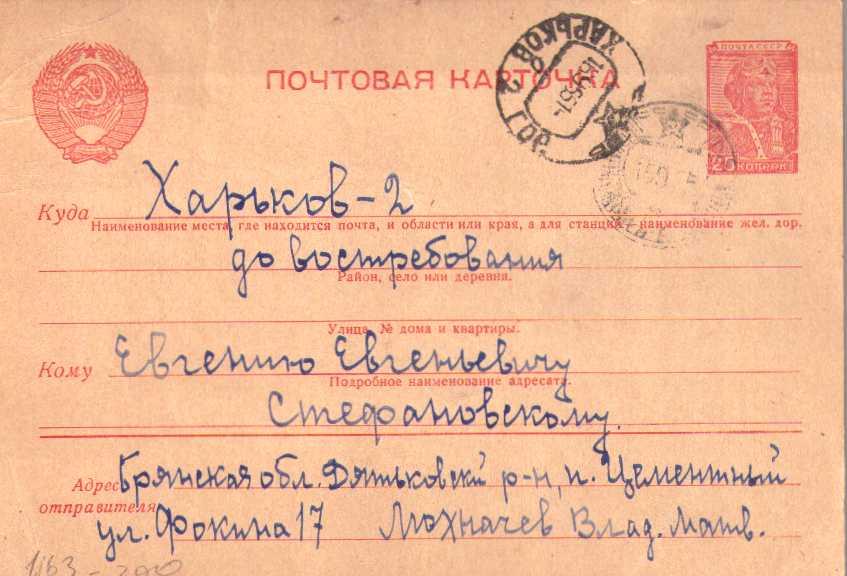 ПОЧТОВАЯ КАРТОЧКА
ПОЧТА СССР
20 КОПЕЕК
ХАРЬКОВ 2
ГОР
Куда Харьков-2
Наименование места, где находится почта, и области или края, а для станций - наименование жел. дор.
до востребования
Район, село или деревня.
Улица, № дома и квартиры.
Кому Евгению Евгеньевичу
Подробное наименование адресата.
Стефановскому.
Адрес отправителя Брянская обл. Дятьковский р-н, п. Цементный
ул. Фокина 17 Мохначев Влад. Матв.